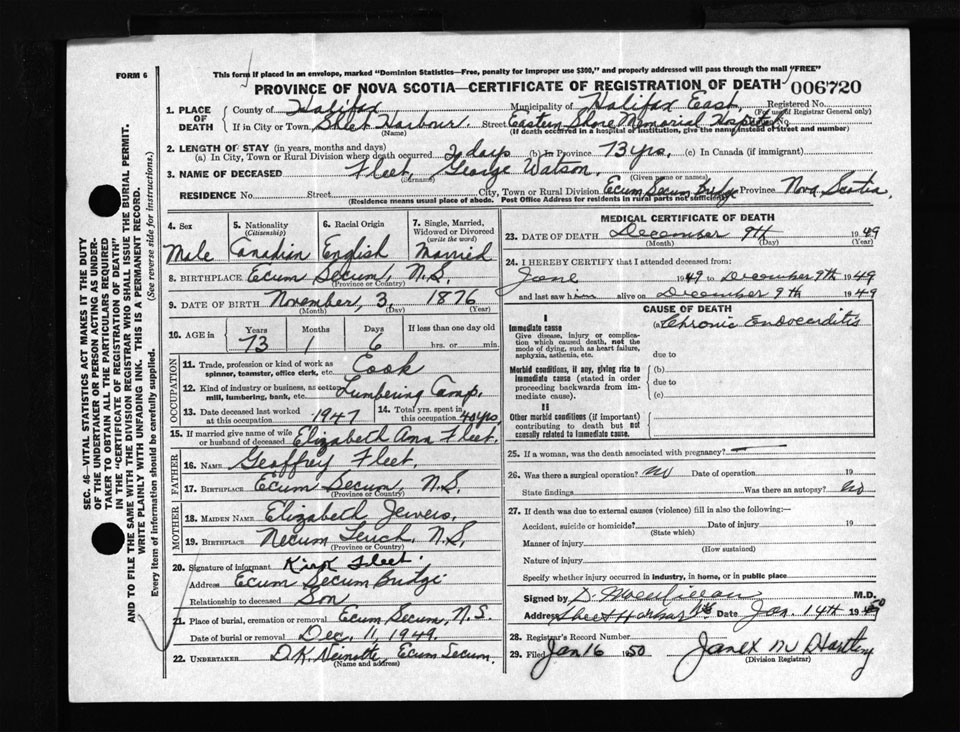 FORM 6
This form if placed in an envelope, marked "Dominion Statistics—Free, penalty for improper use $300," and properly addressed will pass through the mail "FREE"
PROVINCE OF NOVA SCOTIA—CERTIFICATE OF REGISTRATION OF DEATH 006720
1. PLACE OF DEATH County of Halifax Municipality of Halifax East Registered No. (For use of Registrar General only)
If in City or Town Sheet Harbour. Street Eastern Shore Memorial Hospital No.
(Name) (If death occurred in a hospital or institution, give the name instead of street and number)
2. LENGTH OF STAY (in years, months and days)
(a) In City, Town or Rural Division where death occurred 2 days (b) In Province 73 yrs. (c) In Canada (if immigrant)
3. NAME OF DECEASED Fleet, George Watson.
(Surname) (Given name or names)
RESIDENCE No. Street City, Town or Rural Division Ecum Secum Bridge Province Nova Scotia
(Residence means usual place of abode. Post Office Address for residents in rural parts not sufficient)
4. Sex Male
5. Nationality (Citizenship) Canadian
6. Racial Origin English
7. Single, Married, Widowed or Divorced (write the word) Married
8. BIRTHPLACE Ecum Secum, N.S.
(Province or Country)
9. DATE OF BIRTH November, 3, 1876
(Month) (Day) (Year)
10. AGE in Years 73 Months 1 Days 6 If less than one day old hrs. or min.
OCCUPATION
11. Trade, profession or kind of work as spinner, teamster, office clerk, etc. Cook
12. Kind of industry or business, as cotton mill, lumbering, bank, etc. Lumbering Camp.
13. Date deceased last worked at this occupation 1947
14. Total yrs. spent in this occupation 40 yrs
15. If married give name of wife or husband of deceased Elizabeth Ann Fleet.
FATHER
16. NAME Geoffrey Fleet.
17. BIRTHPLACE Ecum Secum, N.S.
(Province or Country)
MOTHER
18. MAIDEN NAME Elizabeth Jewers.
19. BIRTHPLACE Necum Teuch, N.S.
(Province or Country)
20. Signature of informant Kirk Fleet
Address Ecum Secum Bridge
Relationship to deceased Son
21. Place of burial, cremation or removal Ecum Secum, N.S.
Date of burial or removal Dec, 11, 1949.
22. UNDERTAKER D.K. Ecum Secum.
(Name and address)
MEDICAL CERTIFICATE OF DEATH
23. DATE OF DEATH December 9th 1949
(Month) (Day) (Year)
24. I HEREBY CERTIFY that I attended deceased from:
June 1949 to December 9th 1949
and last saw him alive on December 9th 1949
CAUSE OF DEATH
I
Immediate cause
Give disease, injury or complication which caused death, not the mode of dying, such as heart failure, asphyxia, asthenia, etc.
(a) Chronic Endocarditis
due to
Morbid conditions, if any, giving rise to immediate cause (stated in order proceeding backwards from immediate cause).
(b)
due to
(c)
II
Other morbid conditions (if important) contributing to death but not causally related to immediate cause.
25. If a woman, was the death associated with pregnancy? —
26. Was there a surgical operation? No Date of operation 19
State findings Was there an autopsy? No
27. If death was due to external causes (violence) fill in also the following:—
Accident, suicide or homicide? Date of injury 19
(State which)
Manner of injury
(How sustained)
Nature of injury
Specify whether injury occurred in industry, in home, or in public place
Signed by D. M.D.
Address Sheet Harbour NS Date Jan 14th 1950
28. Registrar's Record Number
29. Filed Jan 16 1950
(Division Registrar)
SEC. 46—VITAL STATISTICS ACT MAKES IT THE DUTY
OF THE UNDERTAKER OR PERSON ACTING AS UNDER-
TAKER TO OBTAIN ALL THE PARTICULARS REQUIRED
IN THE "CERTIFICATE OF REGISTRATION OF DEATH"
AND TO FILE THE SAME WITH THE DIVISION REGISTRAR WHO SHALL ISSUE THE BURIAL PERMIT.
WRITE PLAINLY WITH UNFADING INK. THIS IS A PERMANENT RECORD.
Every item of information should be carefully supplied. (See reverse side for instructions.)